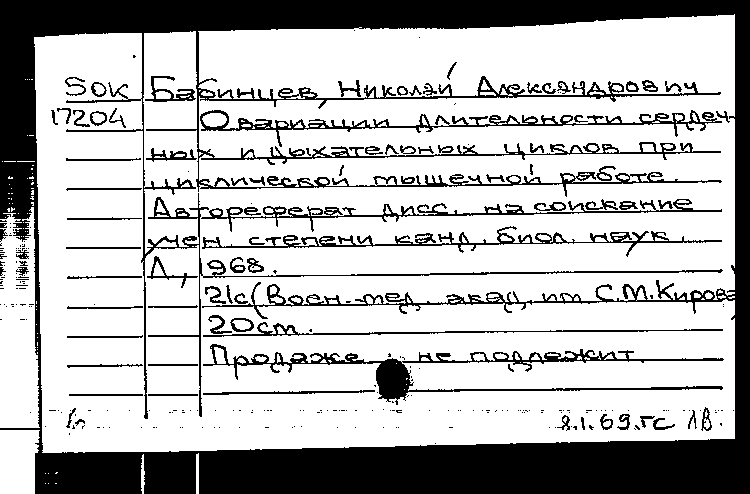 50К Бабинцев, Николай Александрович
17204 О вариации длительности сердеч-
ных и дыхательных циклов при
циклической мышечной работе.
Автореферат дисс. на соискание
учен. степени канд. биол. наук.
Л., 1968.
21с (Воен.-мед. акад. им С.М.Кирова)
20см.
Продаже не подлежит.
8.1.69.гс ЛВ.